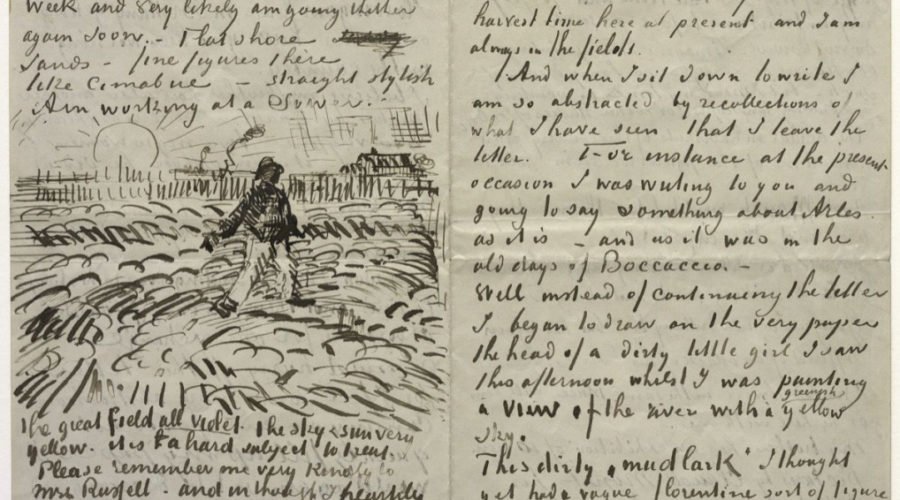 week and very likely am going thither
again soon. - Flat shore
sands - fine figures there
like Cimabue - straight stylish
Am working at a Sower.
the great field all violet. the sky & sun very
yellow. it is a hard subject to treat.
Please remember me very kindly to
Mrs Russell - and in thought I heartily
harvest time here at present and I am
always in the fields.
And when I sit down to write I
am so abstracted by recollections of
what I have seen that I leave the
letter. For instance at the present
occasion I was writing to you and
going to say something about Arles
as it is - and as it was in the
old days of Boccaccio. -
Well instead of continuing the letter
I began to draw on the very paper
the head of a dirty little girl I saw
this afternoon whilst I was painting
a view of the river with a greenish yellow
sky.
This dirty „mudlark“ I thought
yet had a vague florentine sort of figure